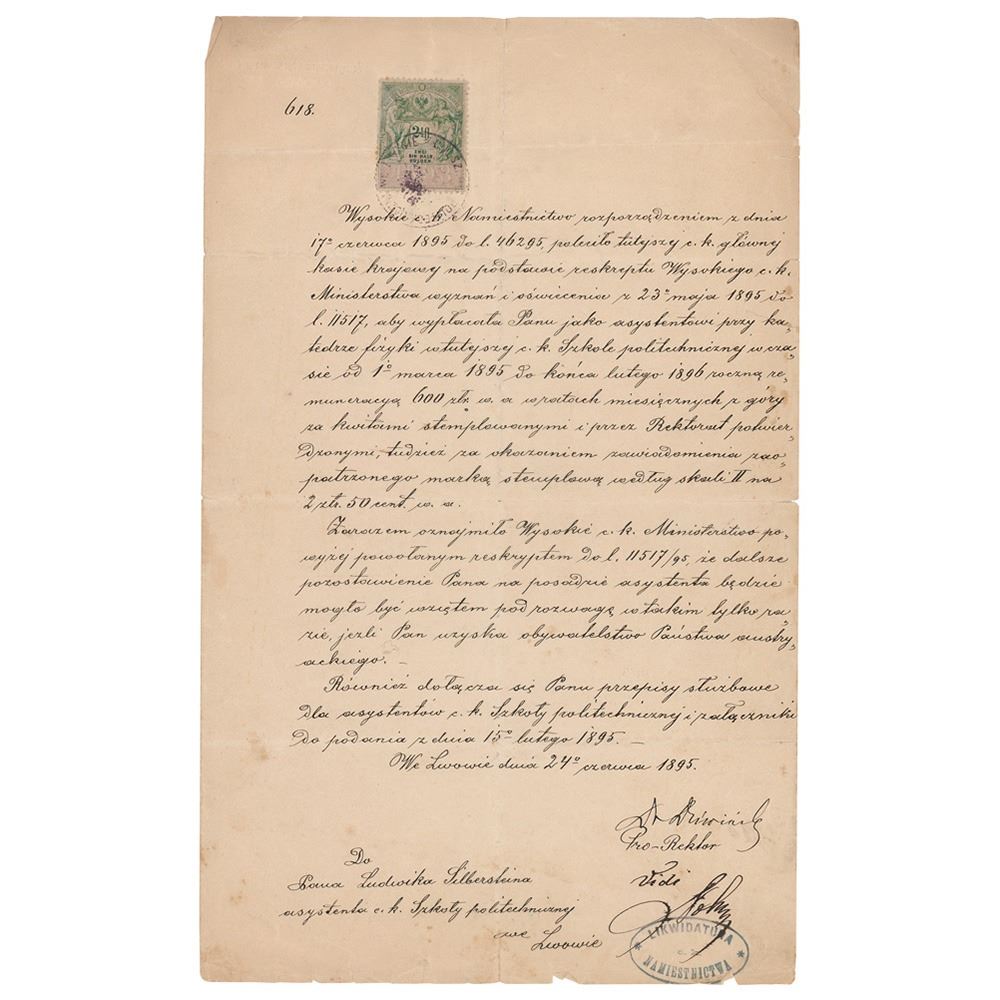 618.
2 10
ZWEI
EIN HALB
GULDEN
Wysokie c. k. Namiestnictwo rozporządzeniem z dnia
17º czerwca 1895 do l. 46295, poleciło tutejszej c. k. głównej
kasie krajowej na podstawie reskryptu Wysokiego c. k.
Ministerstwa wyznań i oświecenia z 23º maja 1895 do
l. 11517, aby wypłacała Panu jako asystentowi przy ka-
tedrze fizyki w tutejszej c. k. Szkole politechnicznej w cza-
sie od 1º marca 1895 do końca lutego 1896 roczną re-
muneracyą 600 złr. w. a w ratach miesięcznych z góry
za kwitami stemplowanymi i przez Rektorat potwier-
dzonymi, tudzież za okazaniem zawiadomienia zao-
patrzonego marką stemplową według skali II na
2 złr. 50 cent. w. a.
Zarazem oznajmiło Wysokie c. k. Ministerstwo po-
wyżej powołanym reskryptem do l. 11517/95, że dalsze
pozostawienie Pana na posadzie asystenta będzie
mogło być wziętem pod rozwagę w takim tylko ra-
zie, jeżli Pan uzyska obywatelstwo Państwa austry-
ackiego. –
Również dołącza się Panu przepisy służbowe
dla asystentów c. k. Szkoły politechnicznej i załączniki
do podania z dnia 15º lutego 1895. –
We Lwowie dnia 24º czerwca 1895.
Dr Dziwiński
Pro-Rektor
Vidi
Do
Pana Ludwika Silbersteina
asystenta c. k. Szkoły politechnicznej
we Lwowie
LIKWIDATURA
C. K.
NAMIESTNICTWA